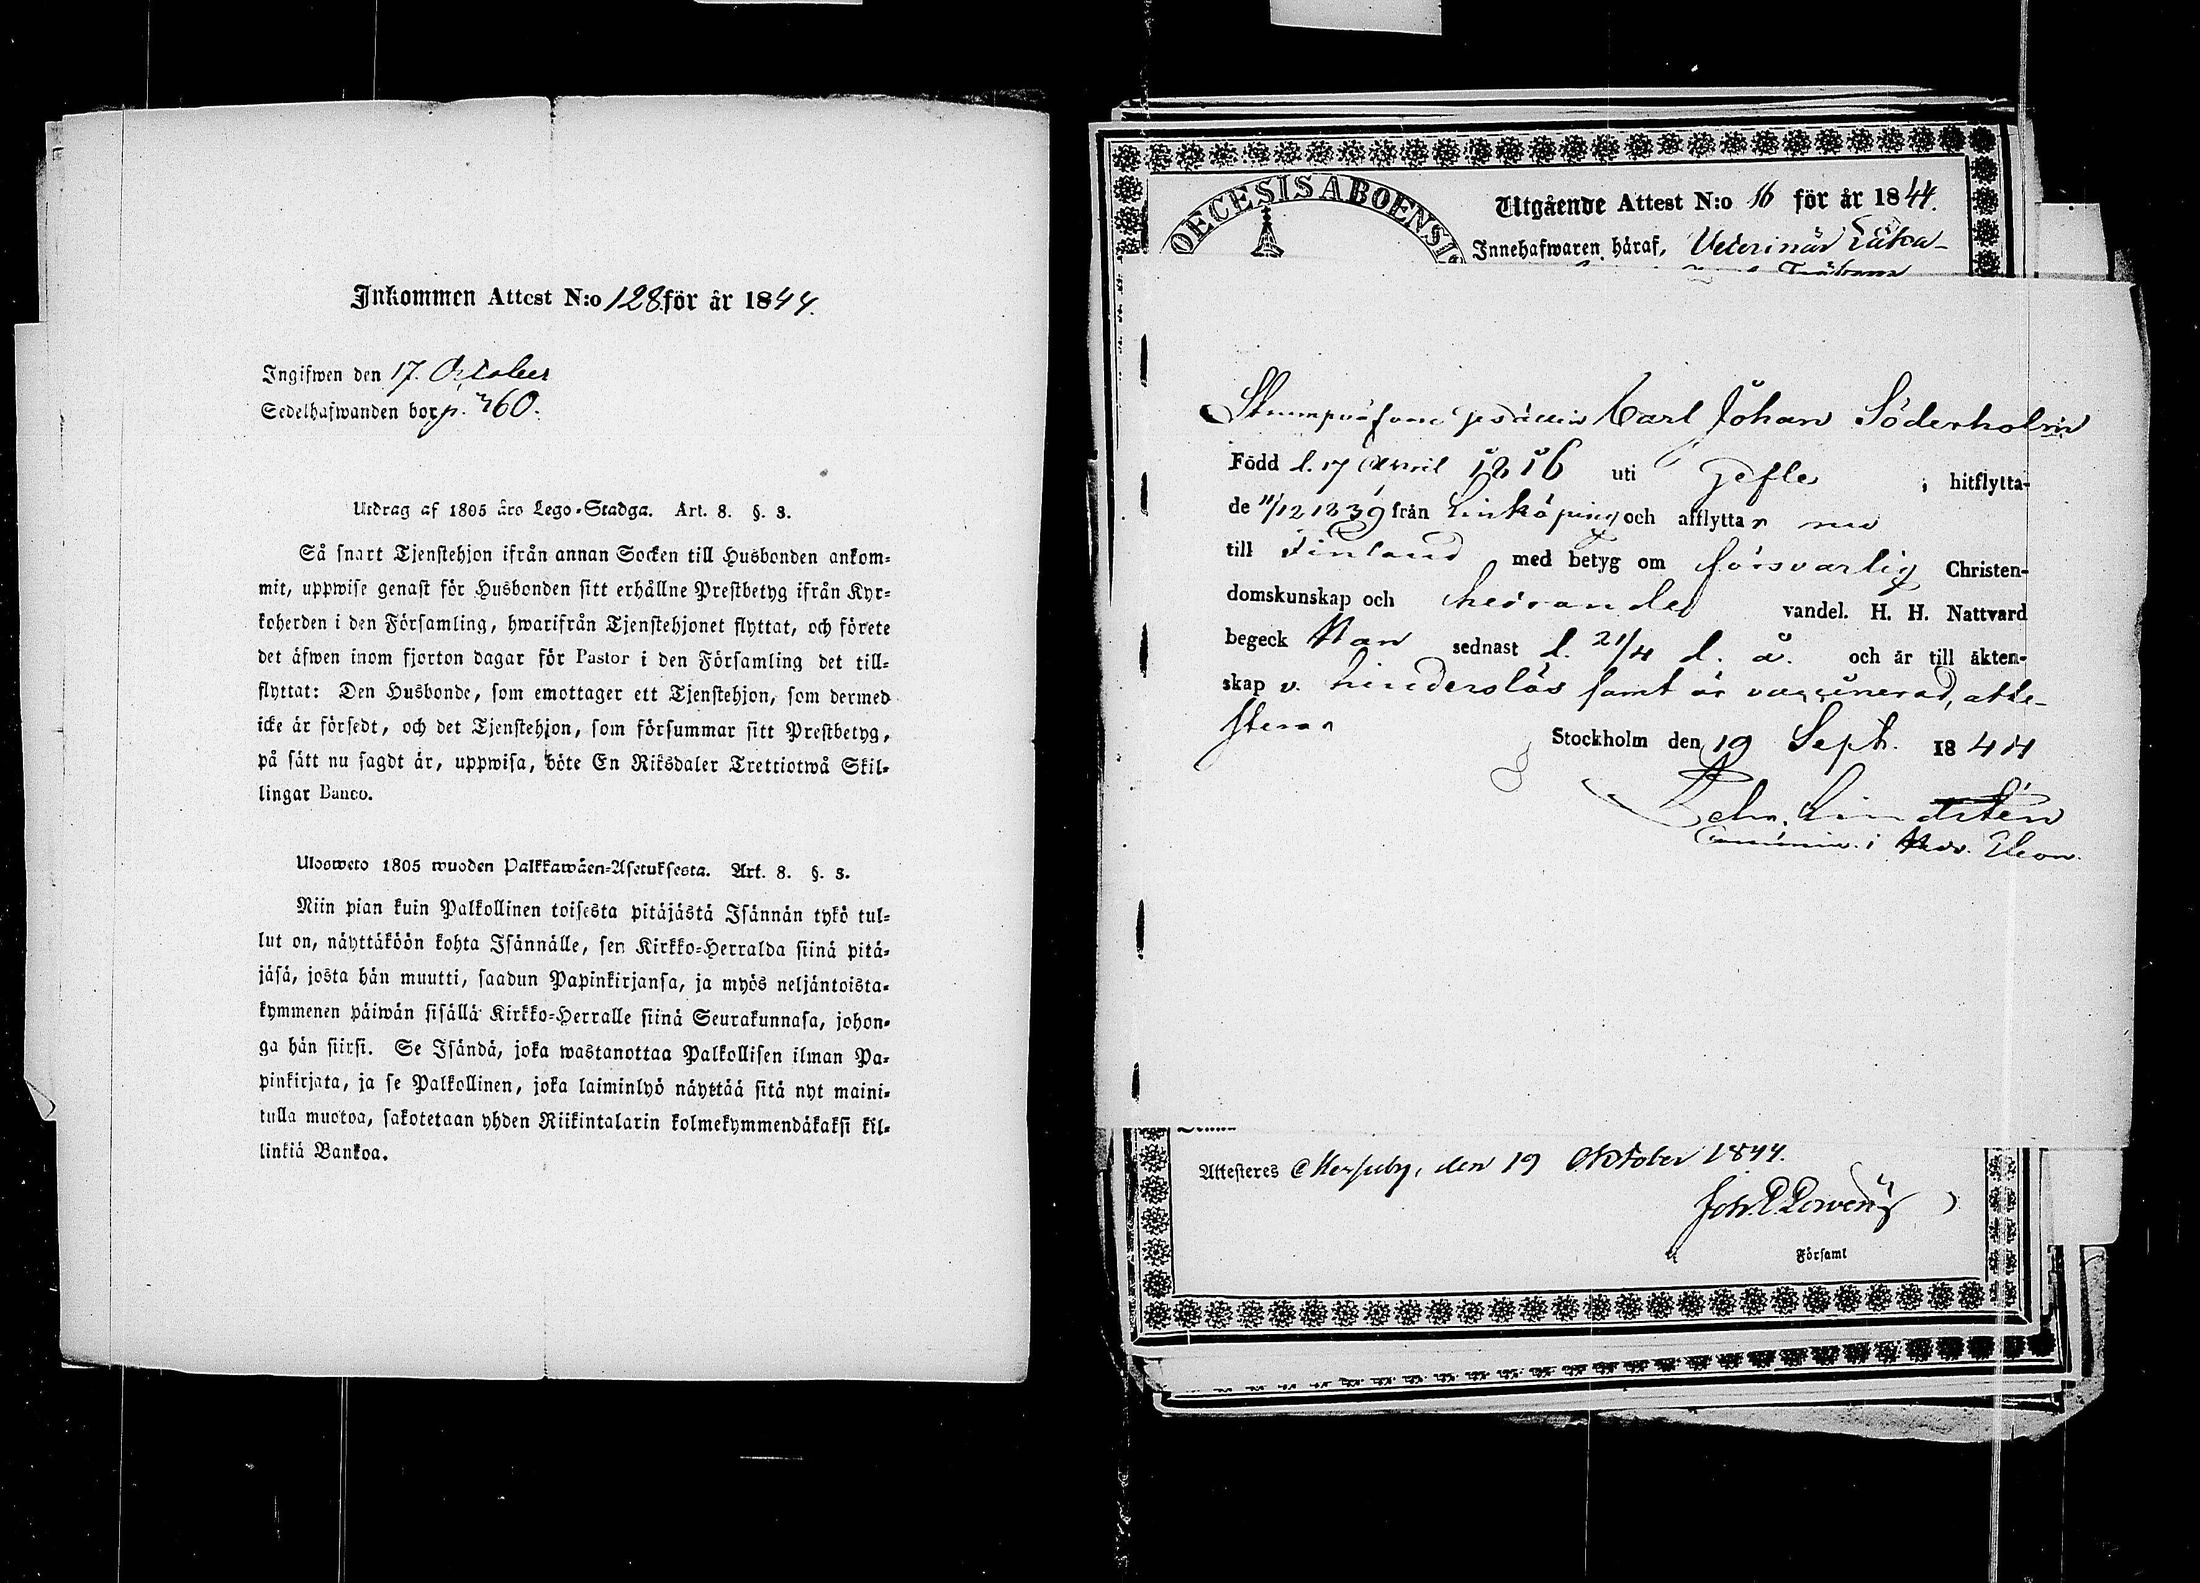 Inkommen Attest N:o 128 för år 1844.
Ingifwen den 17. October
Sedelhafwanden bor p. 360.
Utdrag af 1805 års Lego-Stadga. Art. 8. §. 3.
Så snart Tjenstehjon ifrån annan Socken till Husbonden ankom-
mit, uppwise genast för Husbonden sitt erhållne Prestbetyg ifrån Kyr-
koherden i den Församling, hwarifrån Tjenstehjonet flyttat, och förete
det äfwen inom fjorton dagar för Pastor i den Församling det till-
flyttat: Den Husbonde, som emottager ett Tjenstehjon, som dermed
icke är försedt, och det Tjenstehjon, som försummar sitt Prestbetyg,
på sätt nu sagdt är, uppwisa, böte En Riksdaler Trettiotwå Skil-
lingar Banco.
Ulosweto 1805 wuoden Palkkawäen-Asetuksesta. Art. 8. §. 3.
Niin pian kuin Palkollinen toisesta pitäjästä Isännän tykö tul-
lut on, näyttäköön kohta Isännälle, sen Kirkko-Herralda siinä pitä-
jäsä, josta hän muutti, saadun Papinkirjansa, ja myös neljäntoista-
kymmenen päiwän sisällä Kirkko-Herralle siinä Seurakunnasa, johon-
ga hän siirsi. Se Isändä, joka wastanottaa Palkollisen ilman Pa-
pinkirjata, ja se Palkollinen, joka laiminlyö näyttää sitä nyt maini-
tulla muotoa, sakotetaan yhden Riikintalarin kolmekymmendäkaksi kil-
linkiä Bankoa.
OECESIS ABOENSI
Utgående Attest N:o 16 för år 1844.
Innehafwaren häraf, Veterinär Läka-
Carl Johan Söderholm
Född d. 17 April 1816 uti Gefle, hitflytta-
de 11/12 1839 från Linköping och afflyttar nu
till Finland med betyg om försvarlig Christen-
domskunskap och hedrande vandel. H. H. Nattvard
begeck Han sednast d. 21/4 d. å. och är till äkten-
skap v. hinderslös samt är vaccinerad, atte-
sterar
Stockholm den 19 Sept. 1844
Comminis. i Hedv. Eleon.
Attesteres Merjuby, den 19 Oktober 1844.
Församl